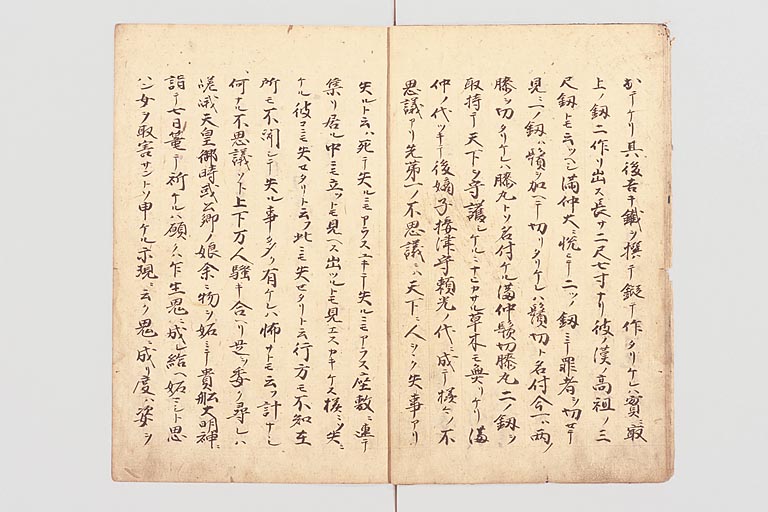 ヲテケリ其後吉キ鐵ヲ撰テ鍛テ作タリケレハ實ニ最
上ノ釼二作リ出ス長サ二尺七寸ナリ彼ノ漢ノ高祖ノ三
尺釼トモ云ツヘシ満仲大ニ悦ヒテ二ツノ釼ニテ罪者ヲ切セテ
見ニ一ノ釼ハ鬚ヲ加ヘテ切リタリケレハ鬚切ト名付今一ハ両ノ
膝ヲ切タリケレハ膝丸トソ名付ケル満仲鬚切膝丸二ノ釼ヲ
取持テ天下ヲ守護シケルニナヒカサル草木モ無リケリ満
仲ノ代ツキテ後嫡子摂津守頼光ノ代ニ成テ様々ノ不
思議アリ先第一ノ不思議ハ天下ニ人ヲヽク失事アリ
失ルト云ハ死テ失ルニモアラス ニキテ失ルニモアラス座敷ニ連テ
集リ居ル中ニモ立ツトモ見ヘス出ツルトモ見エスカキケス様ニソ失ニ
ケル彼コニモ失セタリト云フ此ニモ失セタリト云行方モ不知在
所モ不聞シテ失ル事多ク有ケレハ怖サトモ云フ計ナシ
何ナル不思議ソト上下万人騒キ合ヘリ是ヲ委ク尋レハ
嵯峨天皇御時或公卿ノ娘余ニ物ヲ妬ミテ貴舩大明神ニ
詣テ七日篭テ祈ケルハ願クハ乍生鬼ニ成シ給ヘ妬マシト思
ハン女ヲ取害サントソ申ケル示現ニ云ク鬼ニ成リ度ハ姿ヲ